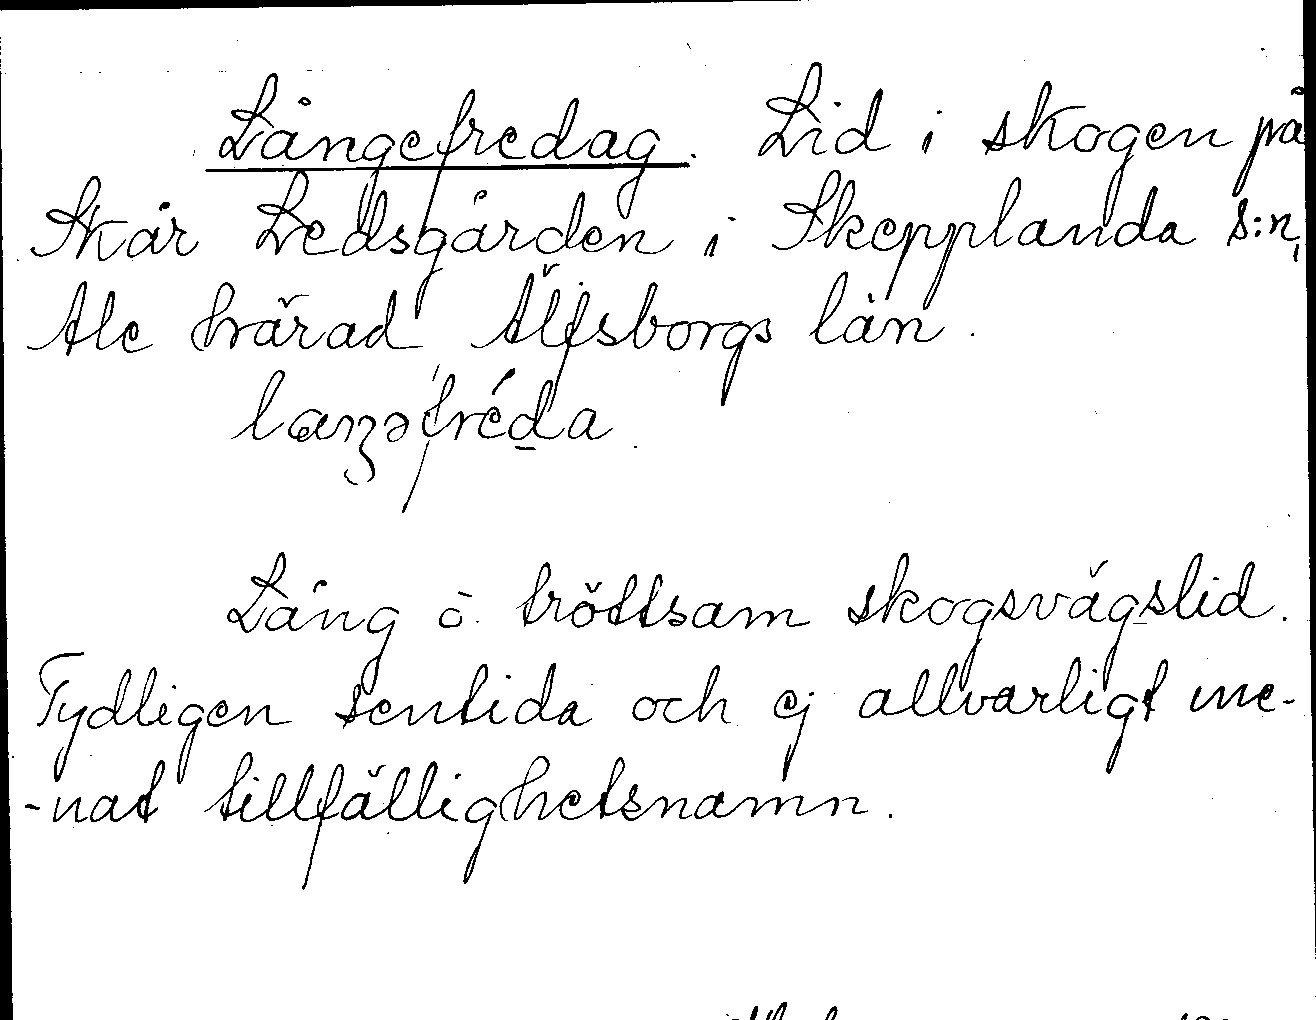 Långefredag. Lid i skogen på
Skår Ledsgården i Skepplanda s:n,
Ale härad, Älfsborgs län.

Lång o. tröttsam skogsvägslid.
Tydligen sentida och ej allvarligt me-
-nat tillfällighetsnamn.